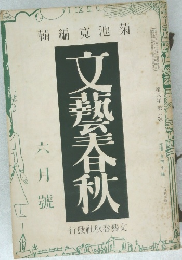 菊池寛編輯
文藝春秋
六月號
文藝春秋社發行